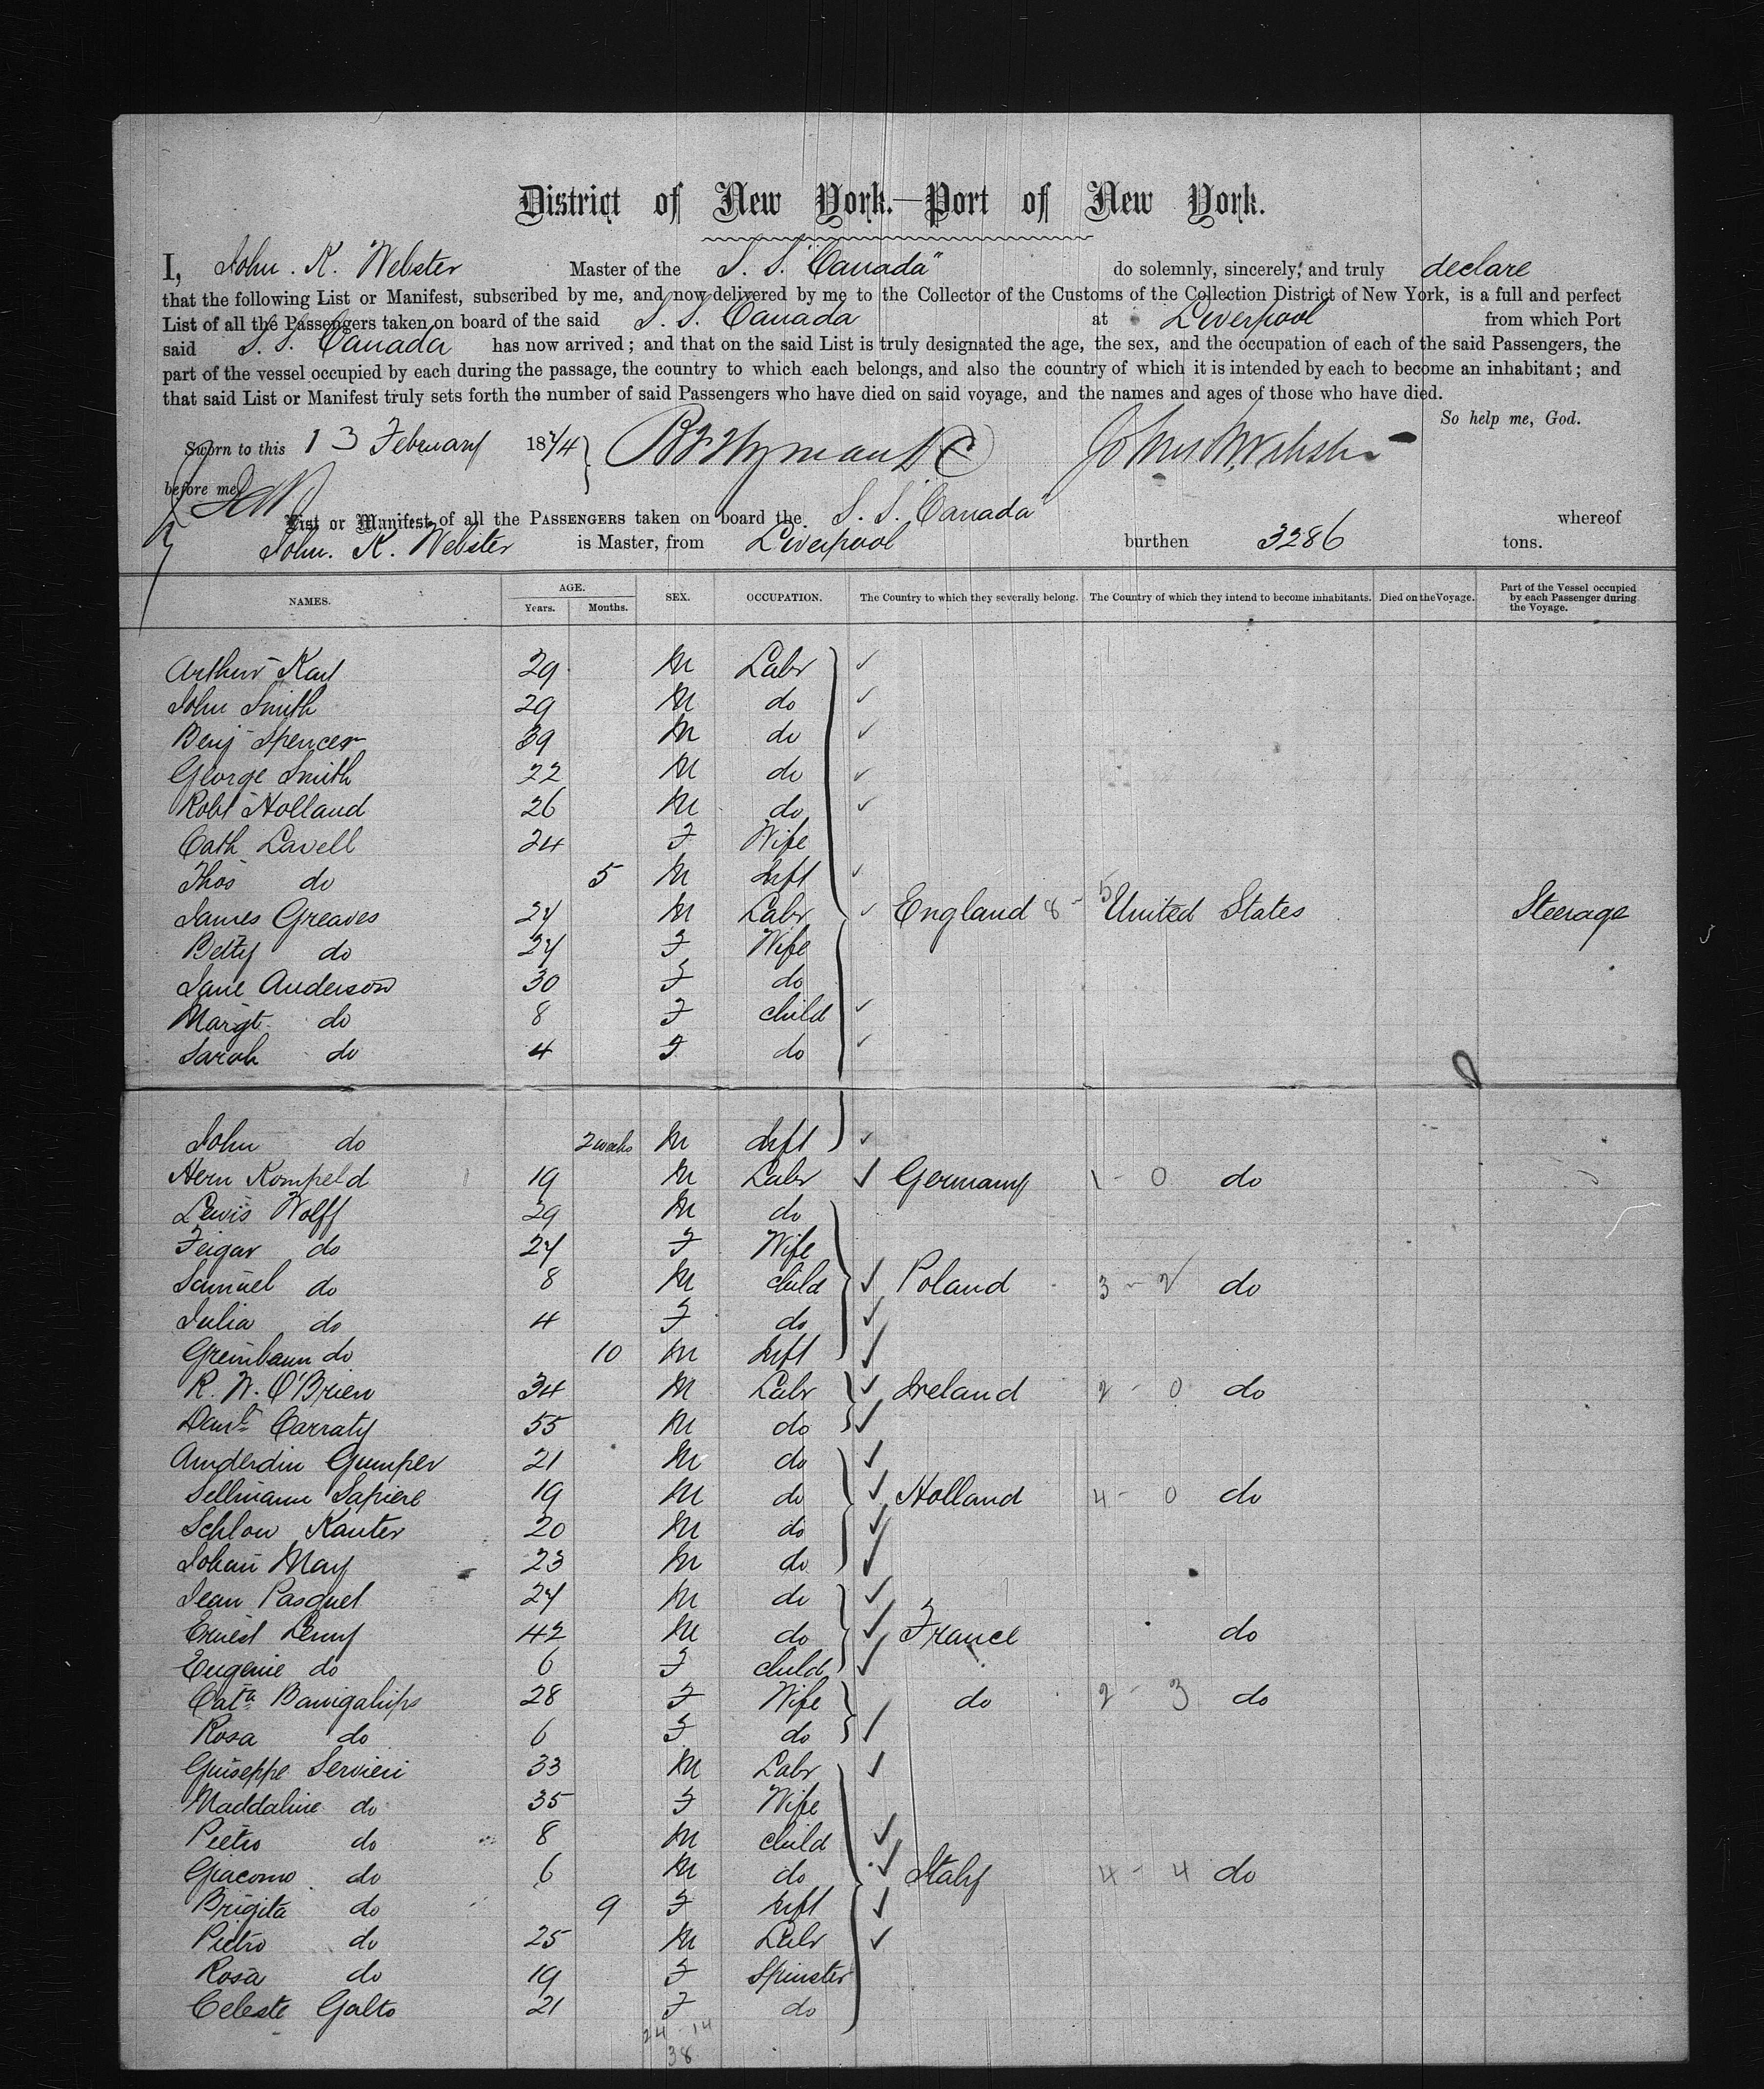 District of New York.—Port of New York.
I, John. K. Webster Master of the S. S. "Canada" do solemnly, sincerely, and truly declare
that the following List or Manifest, subscribed by me, and now delivered by me to the Collector of the Customs of the Collection District of New York, is a full and perfect
List of all the Passengers taken on board of the said S. S. Canada at Liverpool from which Port
said S. S. Canada has now arrived; and that on the said List is truly designated the age, the sex, and the occupation of each of the said Passengers, the
part of the vessel occupied by each during the passage, the country to which each belongs, and also the country of which it is intended by each to become an inhabitant; and
that said List or Manifest truly sets forth the number of said Passengers who have died on said voyage, and the names and ages of those who have died.
So help me, God.
Sworn to this 13 February 1874
before me,
List or Manifest of all the PASSENGERS taken on board the S. S. "Canada" whereof
John. K. Webster is Master, from Liverpool burthen 3286 tons.
NAMES. AGE. Years. Months. SEX. OCCUPATION. The Country to which they severally belong. The Country of which they intend to become inhabitants. Died on the Voyage. Part of the Vessel occupied by each Passenger during the Voyage.
Arthur Karl 29 M Labr
John Smith 29 M do
Benj Spencer 39 M do
George Smith 22 M do
Robt Holland 26 M do
Cath Lavell 24 F Wife
Thos do 5 M Inft
James Greaves 27 M Labr England 8 - 5 United States Steerage
Betty do 27 F Wife
Jane Anderson 30 F do
Margt do 8 F child
Sarah do 4 F do
John do 2 weeks M Inft
Hern Kompeld 19 M Labr Germany 1 - 0 do
Lewis Wolff 29 M do
Feigar do 27 F Wife
Samuel do 8 M child Poland 3 - 2 do
Julia do 4 F do
Greinbaum do 10 M Inft
R. W. O'Brien 34 M Labr Ireland 2 - 0 do
Danl Carraty 55 M do
Amderdin Gumper 21 M do
Sellmann Sapiere 19 M do Holland 4 - 0 do
Schlow Kanter 20 M do
Johan May 23 M do
Jean Pasquel 27 M do
Ernest Leny 42 M do France do
Eugenie do 6 F child
Cata 28 F Wife do 2 - 3 do
Rosa do 6 F do
Guiseppe Servieri 33 M Labr
Maddaline do 35 F Wife
Pietro do 8 M child
Giacomo do 6 M do Italy 4 - 4 do
Brigita do 9 F Inft
Pietro do 25 M Labr
Rosa do 19 F Spinster
Celeste Galto 21 F do
24 - 14
38